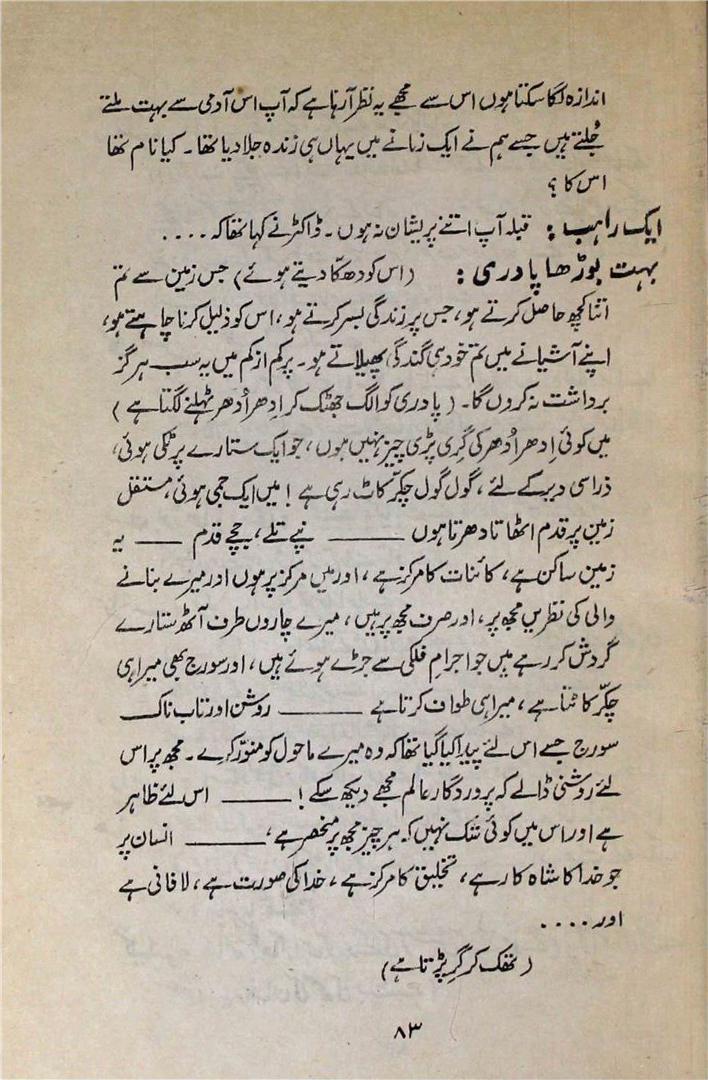 اندازہ لگا سکتا ہوں اس سے مجھے یہ نظر آ رہا ہے کہ آپ اس آدمی سے بہت ملتے
جُلتے ہیں جسے ہم نے ایک زمانے میں یہاں ہی زندہ جلا دیا تھا۔ کیا نام تھا
اس کا ؟
ایک راہب : قبلہ آپ اتنے پریشان نہ ہوں۔ ڈاکٹر نے کہا تھا کہ ....
بہت بوڑھا پادری : (اس کو دھکّا دیتے ہوئے) جس زمین سے تم
اتنا کچھ حاصل کرتے ہو، جس پر زندگی بسر کرتے ہو، اس کو ذلیل کرنا چاہتے ہو،
اپنے آشیانے میں تم خود ہی گندگی پھیلاتے ہو۔ پر کم از کم میں یہ سب ہرگز
برداشت نہ کروں گا۔ (پادری کو الگ جھٹک کر اِدھر اُدھر ٹہلنے لگتا ہے)
میں کوئی اِدھر اُدھر کی گری پڑی چیز نہیں ہوں، جو ایک ستارے پر ٹکی ہوئی،
ذرا سی دیر کے لئے، گول گول چکّر کاٹ رہی ہے ! میں ایک جمی ہوئی، مستقل
زمین پر قدم اٹھاتا دھرتا ہوں ——— نپے تلے، جچے قدم —— یہ
زمین ساکن ہے، کائنات کا مرکز ہے، اور میں مرکز پر ہوں اور میرے بنانے
والی کی نظریں مجھ پر، اور صرف مجھ پر ہیں، میرے چاروں طرف آٹھ ستارے
گردش کر رہے ہیں جو اجرامِ فلکی سے جڑے ہوئے ہیں، اور سورج بھی میرا ہی
چکّر کاٹتا ہے، میرا ہی طواف کرتا ہے ——— روشن اور تاب ناک
سورج جسے اس لئے پیدا کیا گیا تھا کہ وہ میرے ماحول کو منوّر کرے۔ مجھ پر اس
لئے روشنی ڈالے کہ پروردگارِ عالم مجھے دیکھ سکے ! ——— اس لئے ظاہر
ہے اور اس میں کوئی شک نہیں کہ ہر چیز مجھ پر منحصر ہے، ——— انسان پر
جو خدا کا شاہ کار ہے، تخلیق کا مرکز ہے، خدا کی صورت ہے، لافانی ہے
اور ....
(تھک کر گر پڑتا ہے)
۸۳